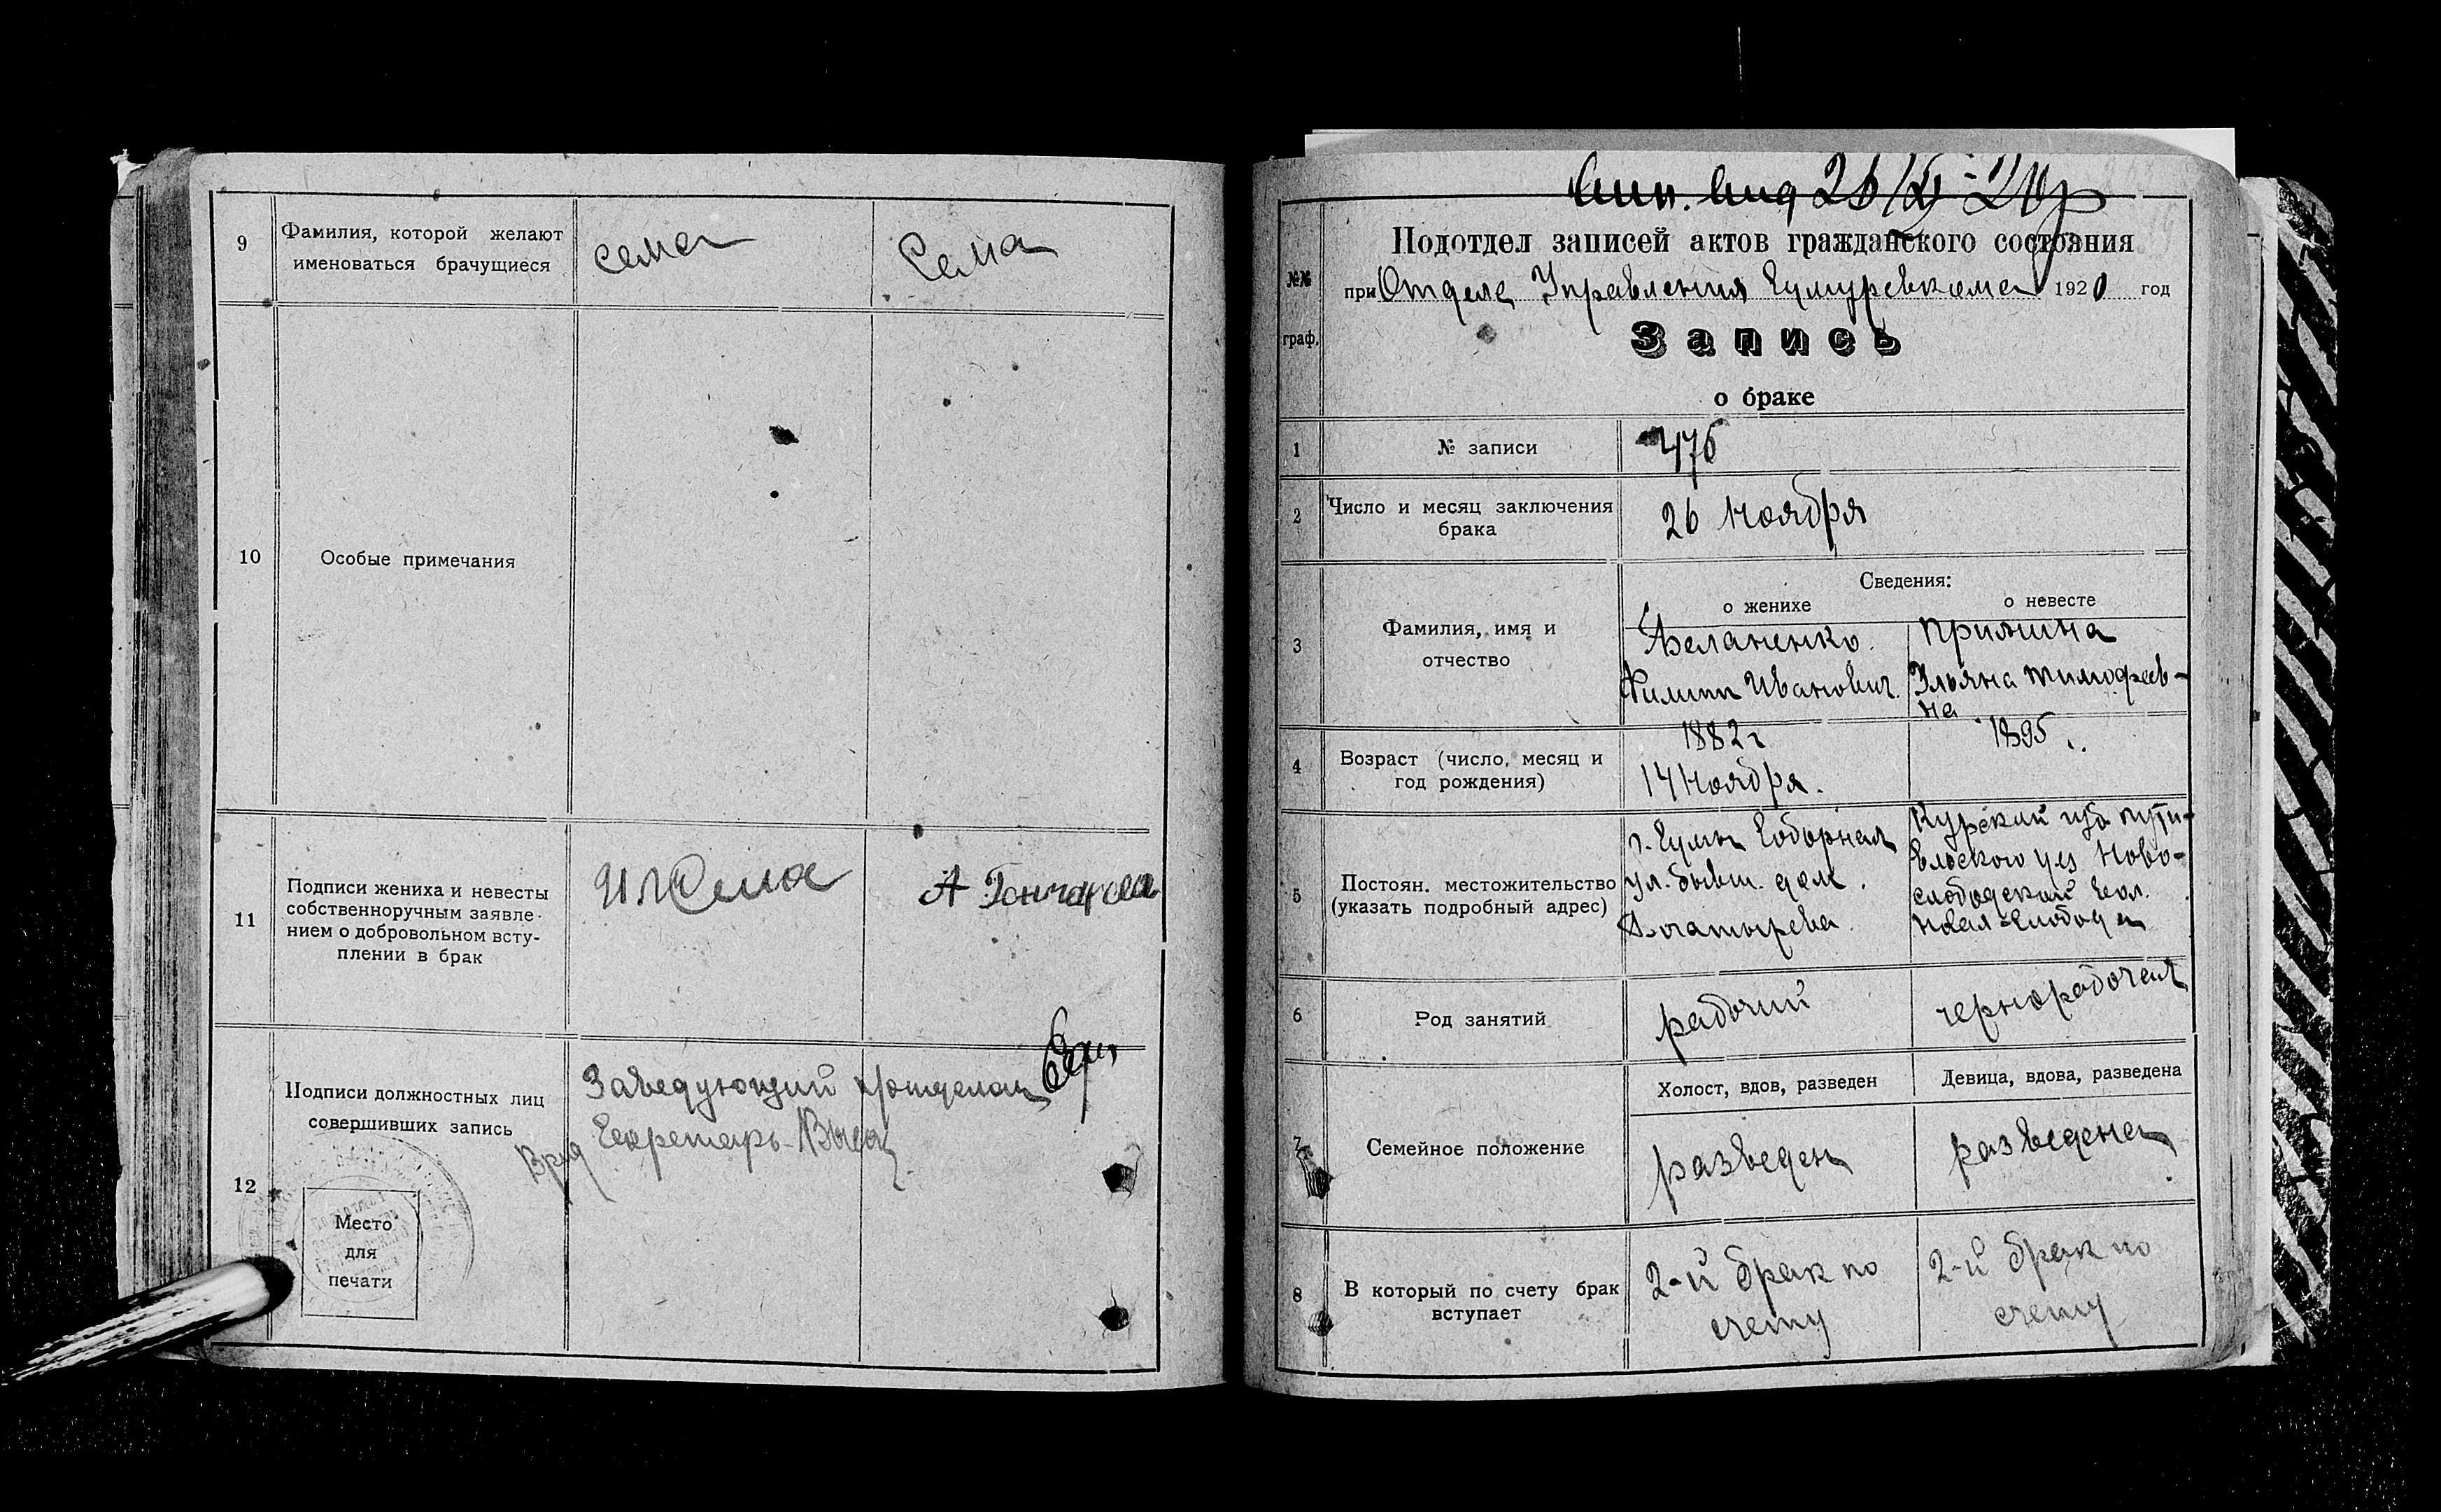 9
Фамилия, которой желают
именоваться брачущиеся
Сема
Сема
10
Особые примечания
11
Подписи жениха и невесты
собственноручным заявле-
нием о добровольном всту-
плении в брак
Сема
А Гончарова
12
Подписи должностных лиц
совершивших запись
Заведующий
Врид Секретарь
Место
для
печати
26/XI-20г
№№
граф.
Подотдел записей актов гражданского состояния
при Отделе Управления Сумуревкома 1920 год
Запись
о браке
1
№ записи
476
2
Число и месяц заключения
брака
26 Ноября
Сведения:
о женихе
о невесте
3
Фамилия, имя и
отчество
Беланенко
Филипп Иванович.
Ульяна Тимофеев-
на
4
Возраст (число, месяц и
год рождения)
1882 г
14 Ноября.
1895
5
Постоян. местожительство
(указать подробный адрес)
г. Сумы Соборная
ул. бывш. дом
Богатырева
Курской губ Пути-
вльского уез Ново-
слободской вол.
Новая-Слобода
6
Род занятий
рабочий
чернорабочая
7
Семейное положение
Холост, вдов, разведен
Девица, вдова, разведена
разведен
разведена
8
В который по счету брак
вступает
2-й брак по
счету
2-й брак по
счету